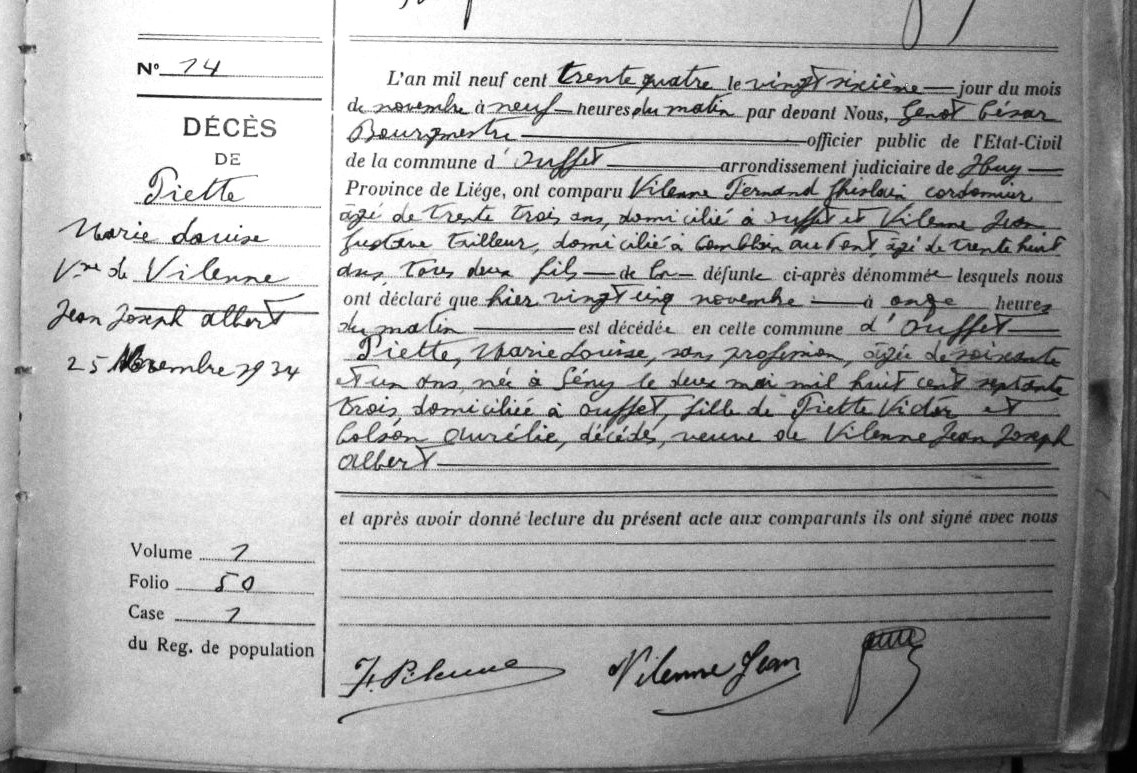 N° 14
DÉCÈS
DE
Piette
Marie Louise
Vve de Vilenne
Jean Joseph Albert
25 Novembre 1934
Volume 1
Folio 50
Case 1
du Reg. de population
L'an mil neuf cent trente quatre le vingt sixième jour du mois
de novembre à neuf heures du matin par devant Nous, Genot César
Bourgmestre officier public de l'Etat-Civil
de la commune d'Ouffet arrondissement judiciaire de Huy
Province de Liége, ont comparu Vilenne Fernand Ghislain cordonnier
âgé de trente trois ans, domicilié à Ouffet et Vilenne Jean
Gustave tailleur, domicilié à Comblain au Pont, âgé de trente huit
ans, tous deux fils de la défunte ci-après dénommée lesquels nous
ont déclaré que hier vingt cinq novembre à onze heures
du matin est décédée en cette commune d'Ouffet
Piette, Marie Louise, sans profession, âgée de soixante
et un ans, née à Seny le deux mai mil huit cent septante
trois, domiciliée à Ouffet, fille de Piette Victor et
Colson Aurélie, décédés, veuve de Vilenne Jean Joseph
Albert
et après avoir donné lecture du présent acte aux comparants ils ont signé avec nous
F. Vilenne Vilenne Jean